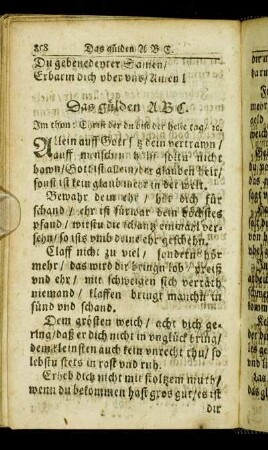 Das gülden A B C.
Du gebenedeyter Samen/
Erbarm dich vber vns/ Amen!
Das gülden A B C.
Im thon: Christ der du bist der helle tag/ ꝛc.
Allein auff Gott/ dein vertrawn/
auff menschen soltu nicht
bawn/ Gott ist allein/ der glauben helt/
sonst ist kein glaub mehr in der welt.
Bewahr dein ehr/ hüt dich für
schand/ ehr ist fürwar dein höchstes
pfand/ wirstu die schantz einmal ver-
sehn/ so ists vmb deine ehr geschehn.
Claff nicht zu viel/ sondern hör
mehr/ das wird dir bringn lob/ preiß
vnd ehr/ mit schweigen sich verräth
niemand/ klaffen bringt manchn in
sünd vnd schand.
Dem grösten weich/ acht dich ge-
ring/ daß er dich nicht in vnglück bring/
dem kleinsten auch kein vnrecht thu/ so
lebstu stets in rast vnd ruh.
Erheb dich nicht mit stoltzem muth/
wenn du bekommen hast gros gut/ es ist
dir